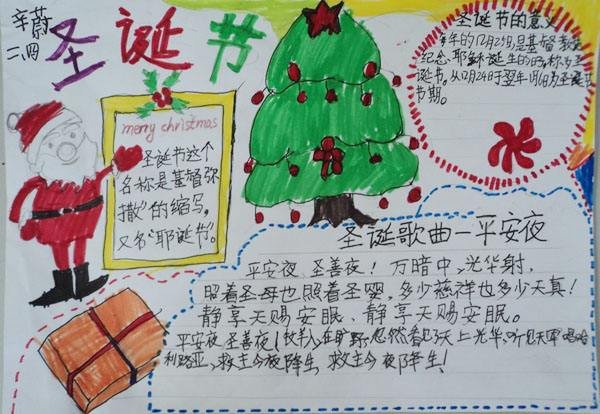 辛蔚
二、四
圣诞节
merry christmas
圣诞节这个
名称是基督弥
撒”的缩写，
又名“耶诞节”。
圣诞节的意义
年的12月25日，是基督教
纪念耶稣诞生的日
诞节，从12月24日于翌年1月
节期。
圣诞歌曲—平安夜
平安夜、圣善夜！万暗中，光华射，
照着圣母也照着圣婴，多少慈祥也多少天真！
静享天赐安眠、静享天赐安眠。
平安夜 圣善夜！牧羊人在旷野，忽然看见了天上光华，听见天军唱哈
利路亚，救主今夜降生 救主今夜降生！